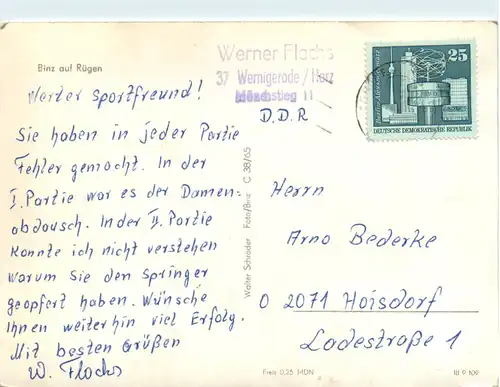 Binz auf Rügen
Werter Sportfreund!
Sie haben in jeder Partie
Fehler gemacht. In der
I. Partie war es der Damen-
abdausch. In der II. Partie
konnte ich nicht verstehen
warum Sie den Springer
geopfert haben. Wünsche
Ihnen weiterhin viel Erfolg.
Mit besten Grüßen
W. Flachs
Werner Flachs
37 Wernigerode/Harz
Mönchstieg 11
D.D.R
25
DEUTSCHE DEMOKRATISCHE REPUBLIK
Walter Schröder Foto/Binz C 38/65
Herrn
Arno Bederke
O 2071 Hoisdorf
Ladestraße 1
Preis 0,25 MDN
III 9 109